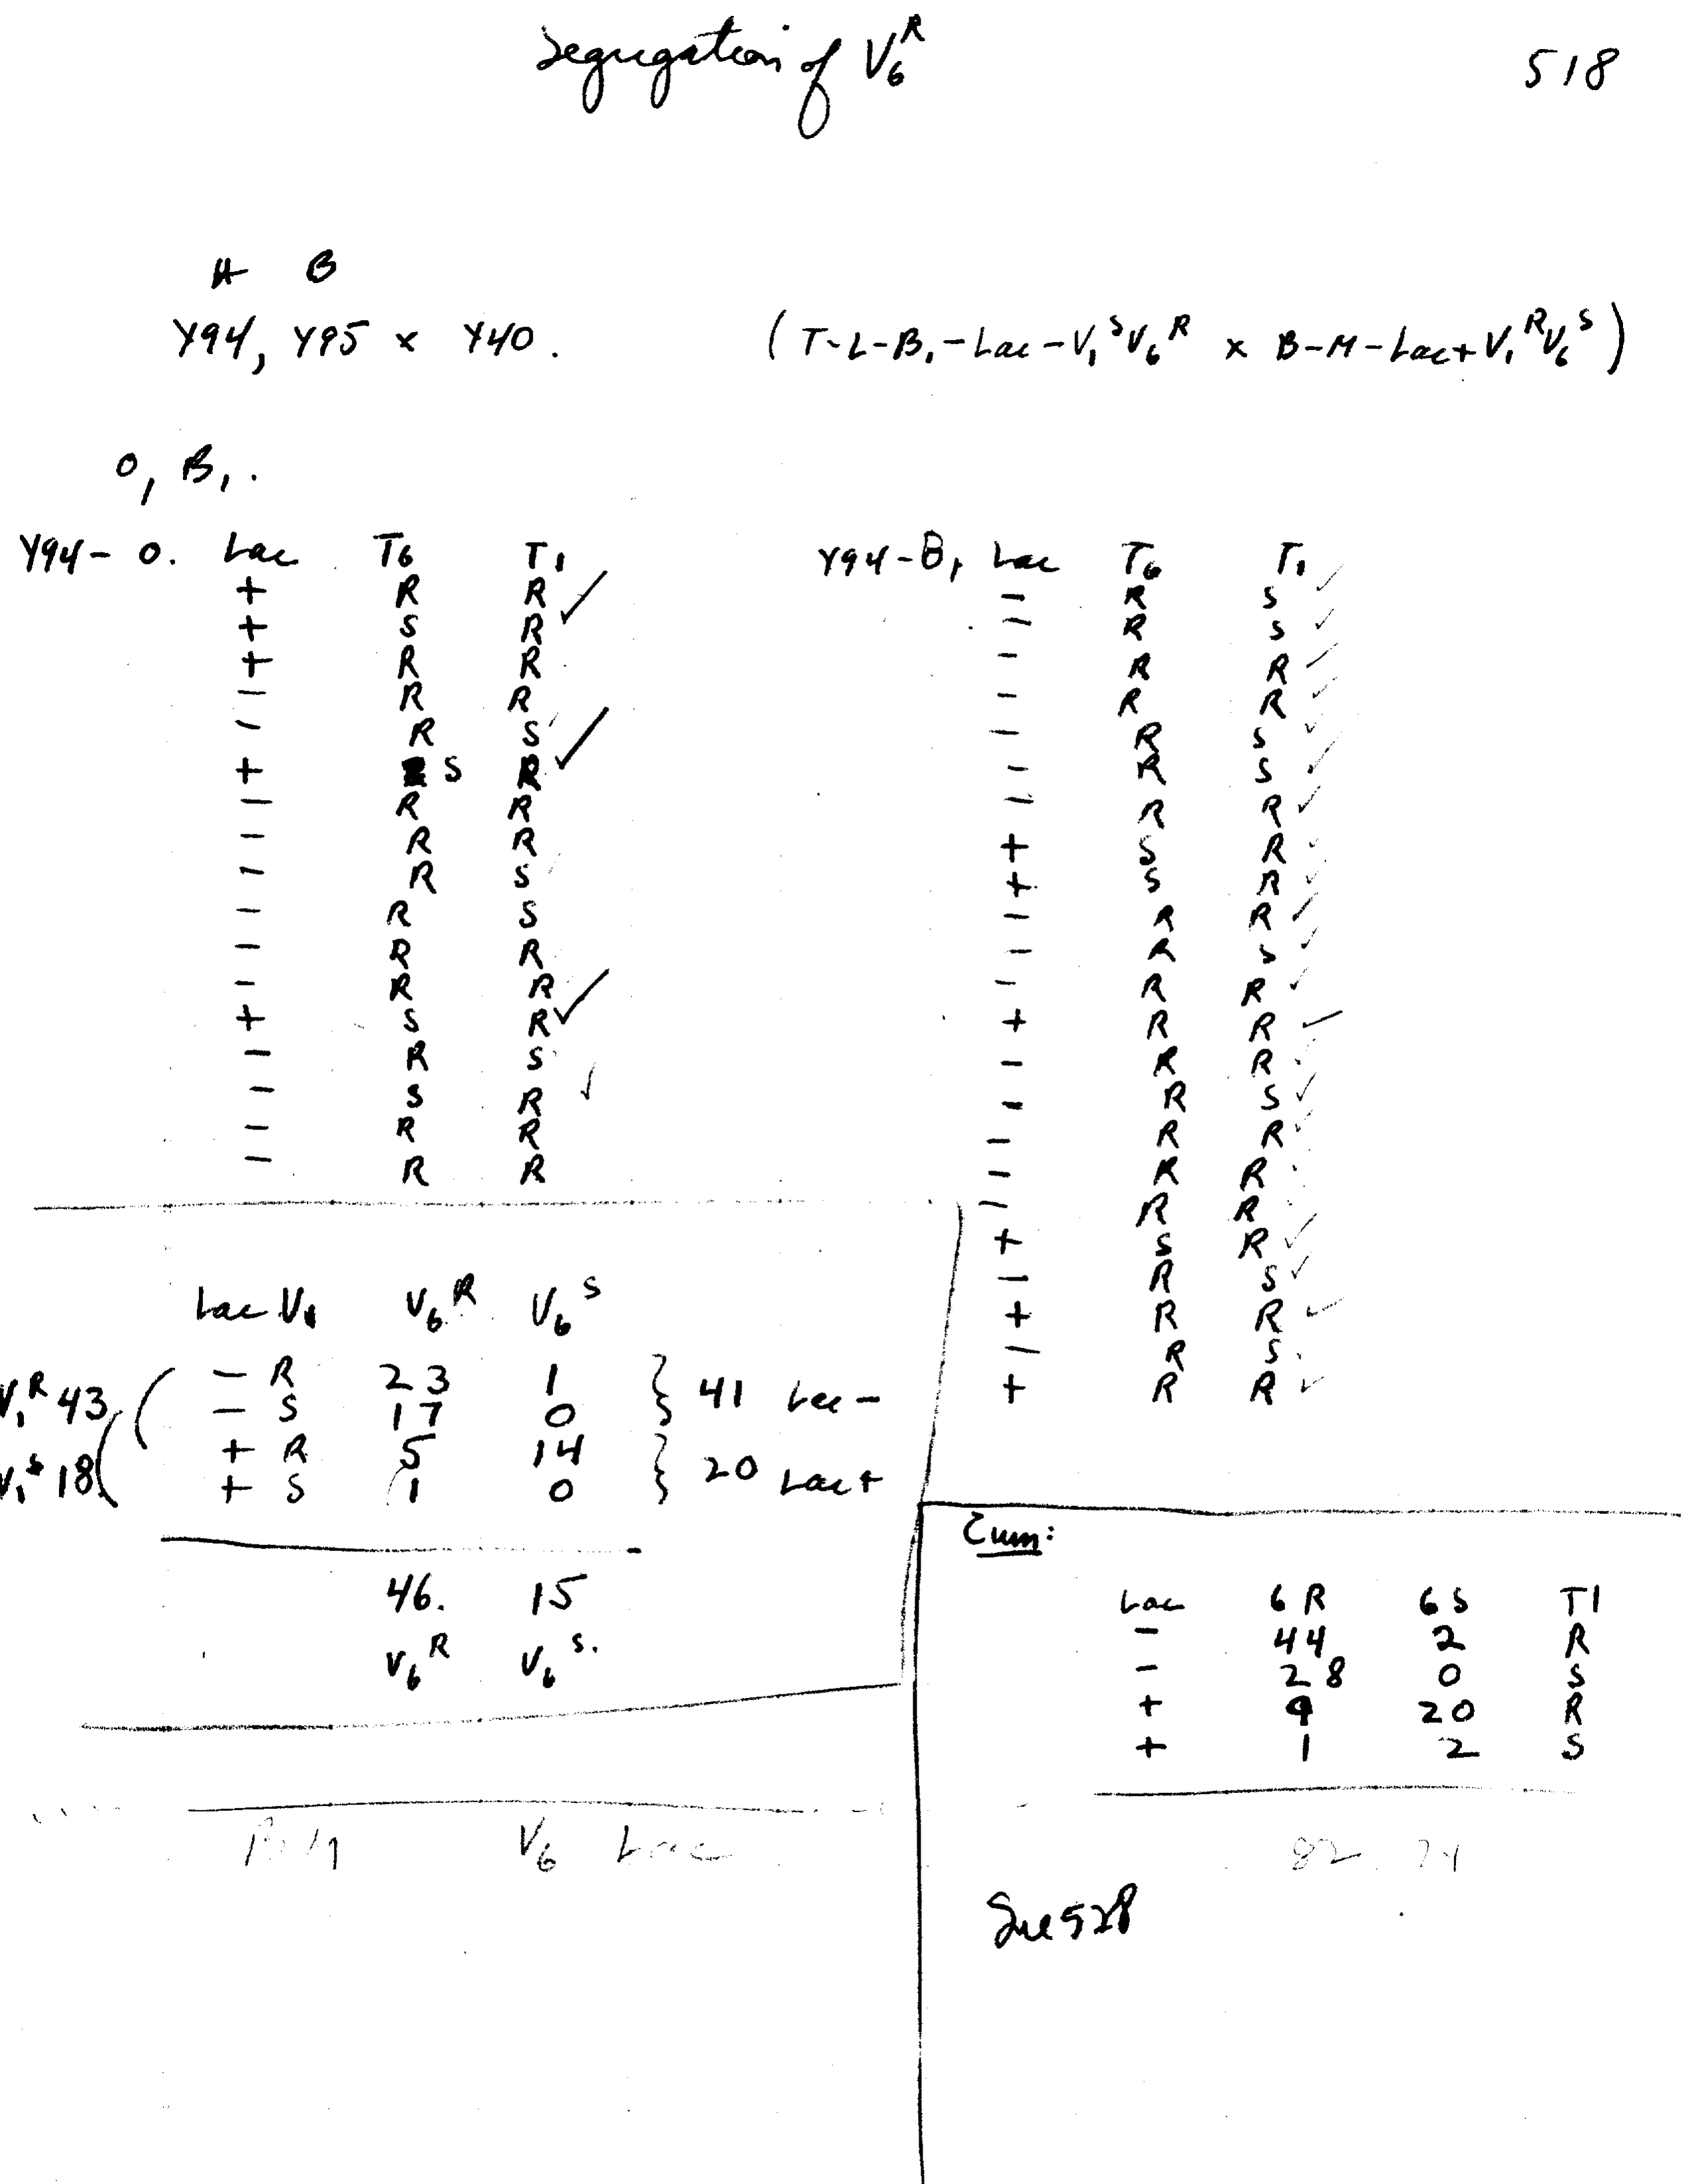 Segregation of V₆ᴿ
518
A B
Y94, Y95 x Y40. (T-L-B₁-Lac-V₁ˢV₆ᴿ x B-M-Lac+V₁ᴿV₆ˢ)
O, B₁.
Y94- O. Lac T₆ T₁
+ R R
+ S R ✓
+ R R
- R R
- R S
+ S R ✓
- R R
- R R
- R S
- R S
- R R
- R R
+ S R ✓
- R S
- S R ✓
- R R
- R R
Y94-B₁ Lac T₆ T₁
- R S ✓
- R S ✓
- R R ✓
- R R ✓
- R S ✓
- R S ✓
- R R ✓
+ S R ✓
+ S R ✓
- R R ✓
- R S ✓
- R R ✓
+ R R ✓
- R R ✓
- R S ✓
- R R ✓
- R R
- R R
+ S R ✓
- R S ✓
+ R R ✓
- R S
+ R R ✓
Lac V₁ V₆ᴿ V₆ˢ
V₁ᴿ 43 ( - R 23 1 } 41 Lac -
- S 17 0
V₁ˢ 18 ( + R 5 14 } 20 Lac+
+ S 1 0
46. 15
V₆ᴿ V₆ˢ.
V₆ Lac
Cum:
Lac 6R 6S T1
- 44 2 R
- 28 0 S
+ 9 20 R
+ 1 2 S
82 24
See 528